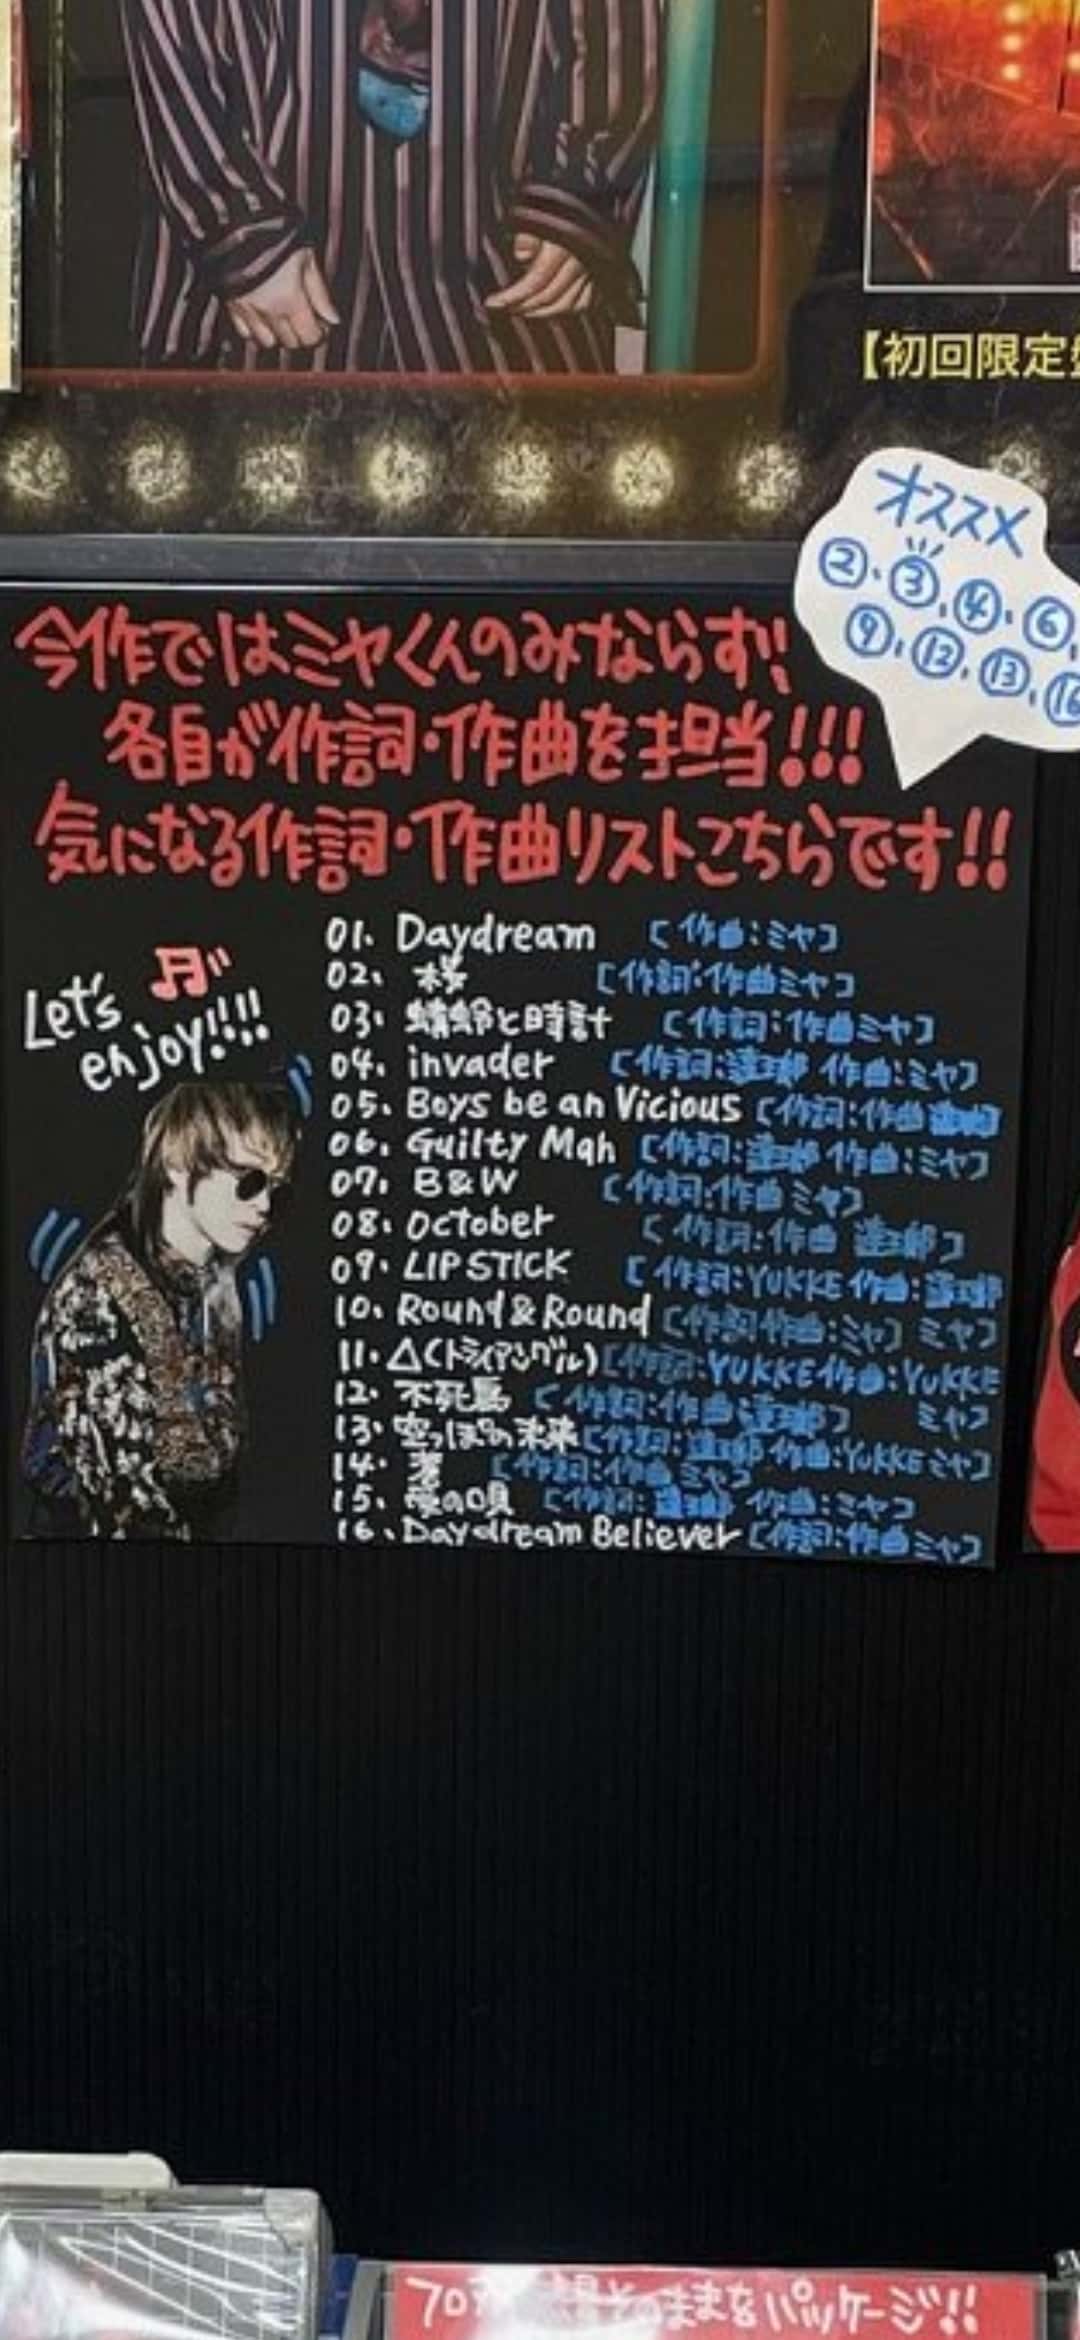 【初回限定
オススメ
②、③、④、⑥、
⑨、⑫、⑬、⑯
今作ではミヤくんのみならず!!
各自が作詞・作曲を担当!!!
気になる作詞・作曲リストこちらです!!
Let's enjoy!!!!
01. Daydream [作曲:ミヤ]
02. 桜 [作詞・作曲ミヤ]
03. 蜻蛉と時計 [作詞:作曲ミヤ]
04. invader [作詞:逹瑯 作曲:ミヤ]
05. Boys be an Vicious [作詞:作曲 逹瑯
06. Guilty Man [作詞:逹瑯 作曲:ミヤ]
07. B&W [作詞:作曲 ミヤ]
08. October [作詞:作曲 逹瑯]
09. LIP STICK [作詞:YUKKE 作曲:逹瑯
10. Round & Round [作詞作曲:ミヤ] ミヤ]
11. △(トライアングル) [作詞:YUKKE 作曲:YUKKE
12. 不死鳥 [作詞:作曲 逹瑯] ミヤ]
13. 空っぽの未来 [作詞:逹瑯 作曲:YUKKE ミヤ]
14. [作詞:作曲 ミヤ]
15. 愛の唄 [作詞:逹瑯 作曲:ミヤ]
16. Daydream Believer [作詞:作曲 ミヤ]
そのままをパッケージ!!